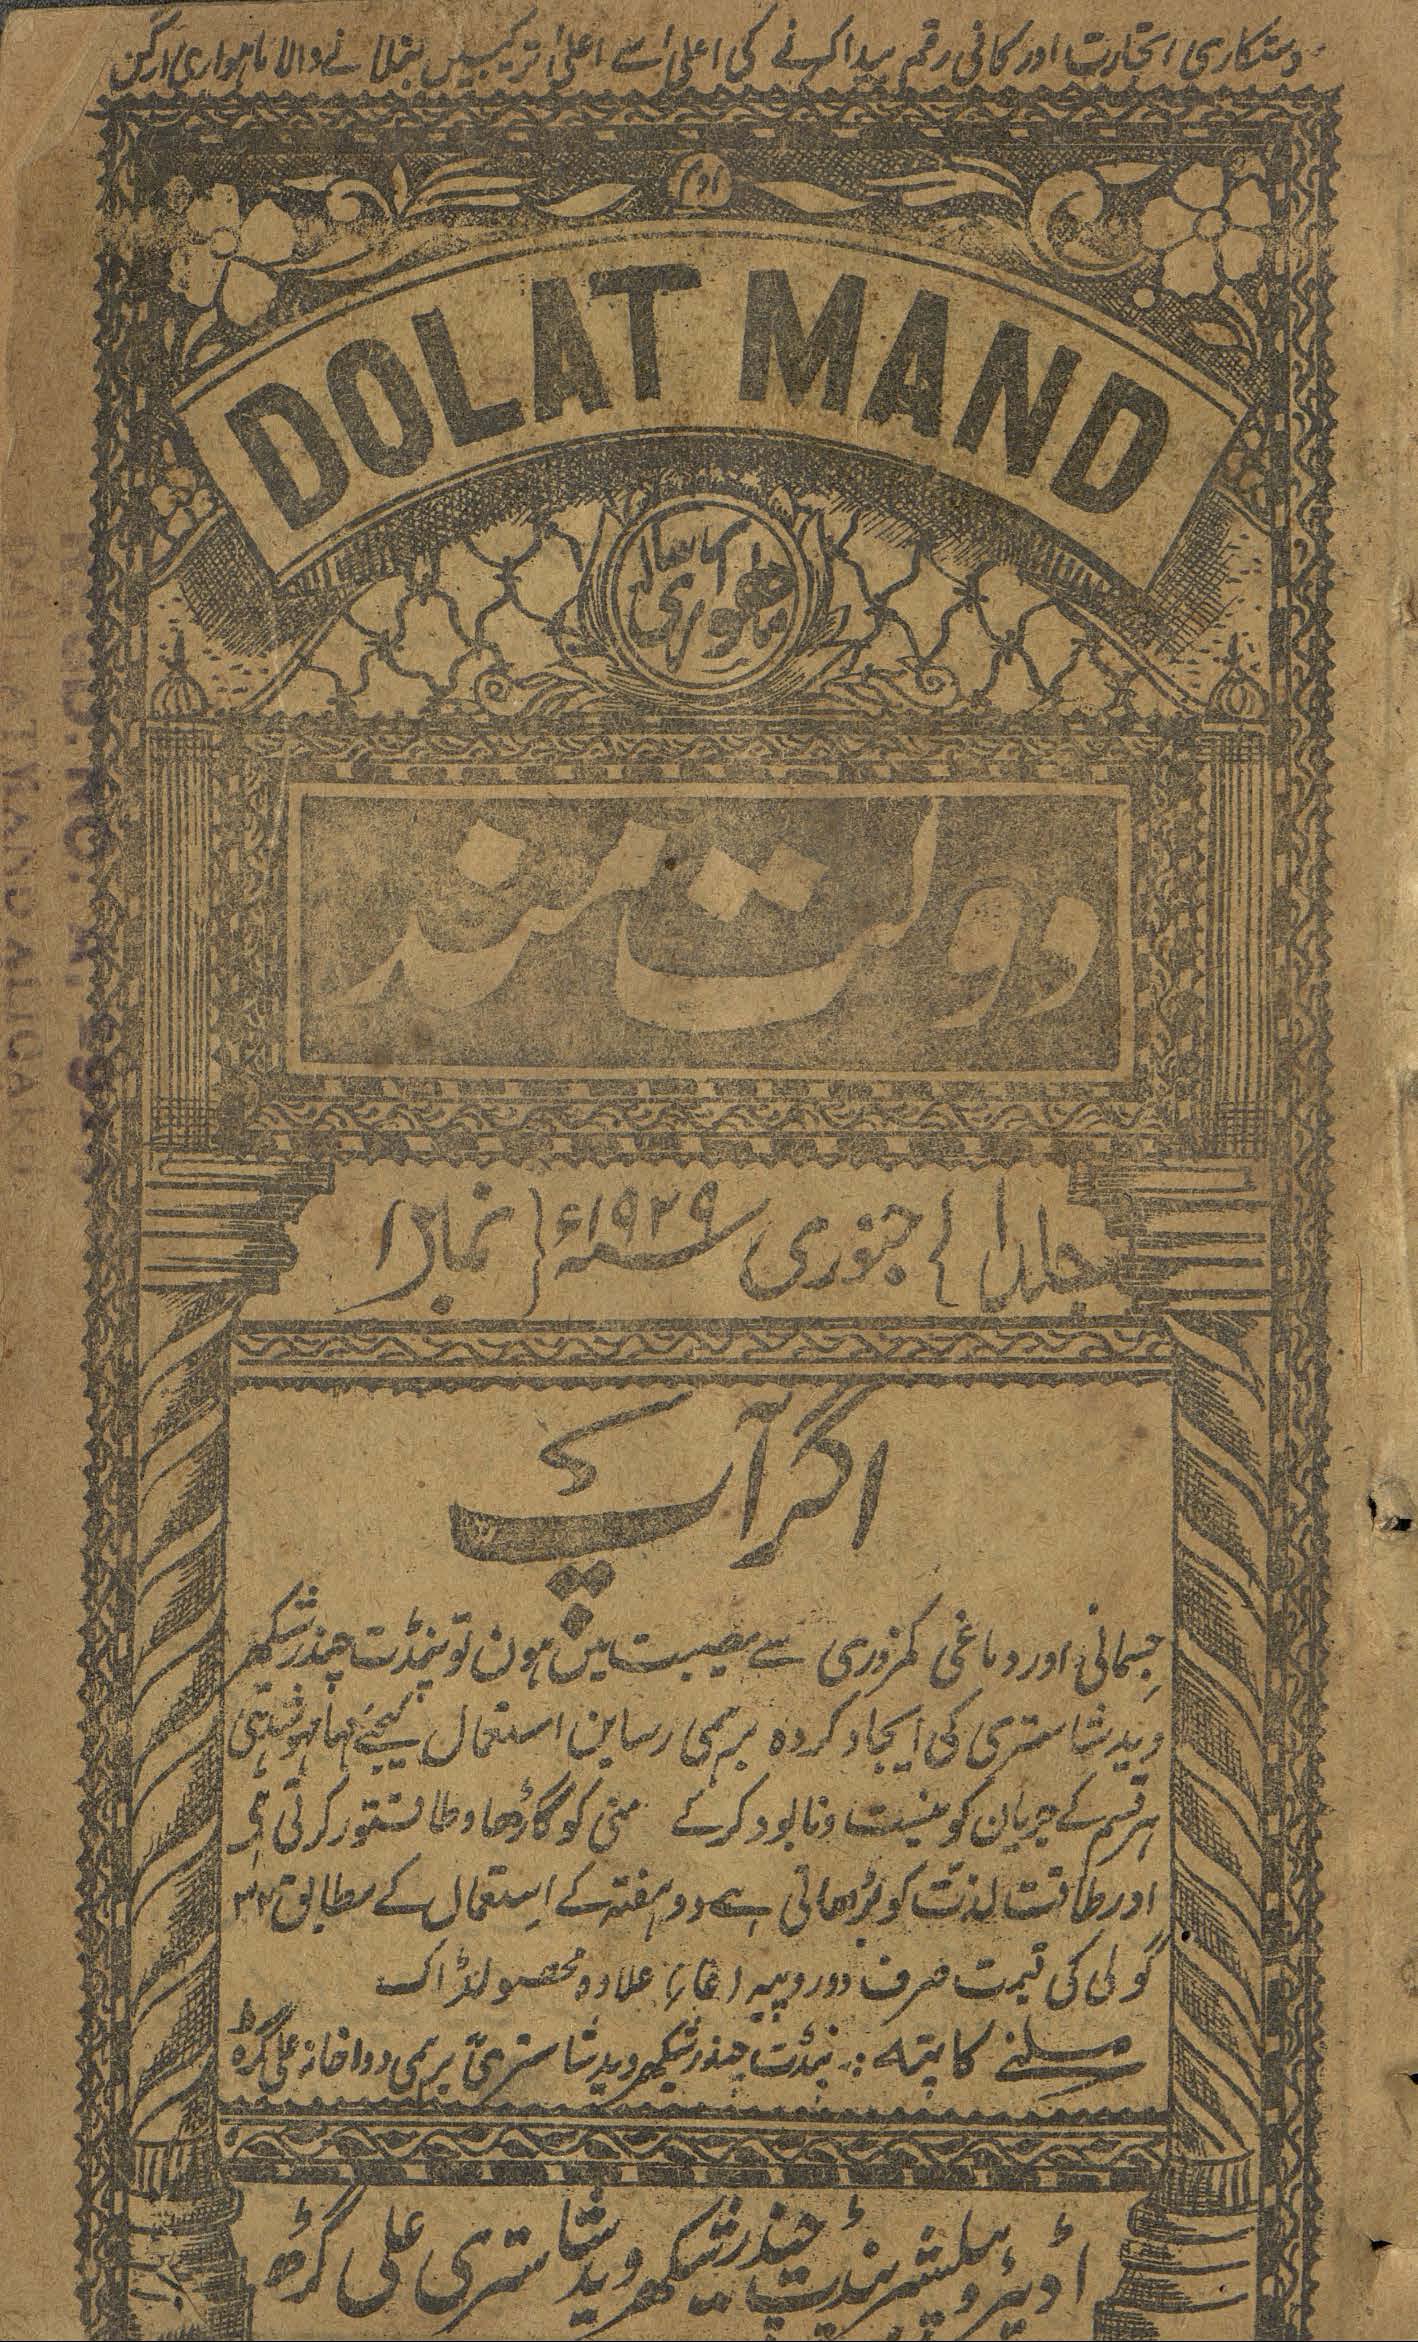 دستکاری تجارت اور کافی رقم پیدا کرنے کی اعلیٰ سے اعلیٰ ترکیبیں بتلانے والا ماہواری آرگن
اوم
DOLAT MAND
ماھوری رسالہ
دولت مند
جلد ۱ { جنوری سنہ ۱۹۲۹ء { نمبر ۱
اگر آپ
جسمانی اور دماغی کمزوری سے مصیبت میں ہون تو پنڈت چندر شیکھر
وید شاستری کی ایجاد کردہ برہمی رساین استعمال کیجئے
ہر قسم کے جریان کو نیست و نابود کرکے منی کو گاڑھا و طاقتور کرتی ہی
اور طاقت لذت کو بڑھاتی ہے دو ہفتہ کے اِستعمال کے مطابق ۳۲
گولی کی قیمت صرف دو روپیہ علاوہ محصولڈاک
ملنے کا پتہ :۔ پنڈت چندر شیکھر وید شاستری برہمی دواخانہ علی گڑہ
اڈیٹر و پبلیشر پنڈت چندر شیکھر وید شاستری علی گڑھ
REGD. NO. A.